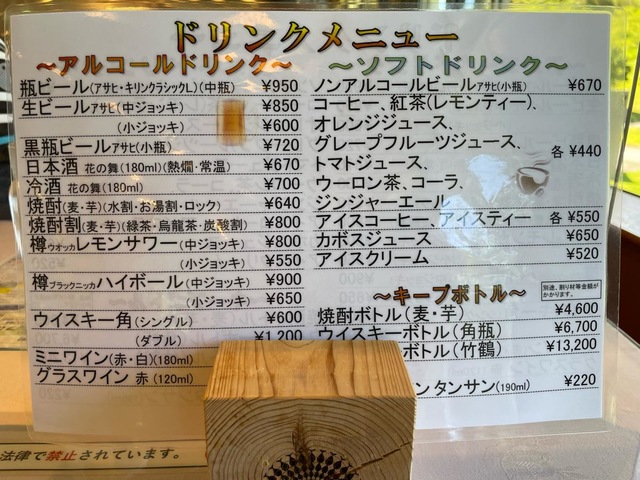 ドリンクメニュー
～アルコールドリンク～
瓶ビール(アサヒ・キリンクラシックL.)(中瓶) ¥950
生ビールアサヒ(中ジョッキ) ¥850
(小ジョッキ) ¥600
黒瓶ビールアサヒ(小瓶) ¥720
日本酒 花の舞(180ml)(熱燗・常温) ¥670
冷酒 花の舞(180ml) ¥700
焼酎(麦・芋)(水割・お湯割・ロック) ¥640
焼酎割(麦・芋)(緑茶・烏龍茶・炭酸割) ¥800
樽ウオッカレモンサワー(中ジョッキ) ¥800
(小ジョッキ) ¥550
樽ブラックニッカハイボール(中ジョッキ) ¥900
(小ジョッキ) ¥650
ウイスキー角(シングル) ¥600
(ダブル) ¥1,200
ミニワイン(赤・白)(180ml)
グラスワイン 赤(120ml)
～ソフトドリンク～
ノンアルコールビールアサヒ(小瓶) ¥670
コーヒー、紅茶(レモンティー)、
オレンジジュース、
グレープフルーツジュース、
トマトジュース、
ウーロン茶、コーラ、
ジンジャーエール
各 ¥440
アイスコーヒー、アイスティー 各 ¥550
カボスジュース ¥650
アイスクリーム ¥520
～キープボトル～
別途、割り材等金額がかかります。
焼酎ボトル(麦・芋) ¥4,600
ウイスキーボトル(角瓶) ¥6,700
ボトル(竹鶴) ¥13,200
ン タンサン(190ml) ¥220
法律で禁止されています。